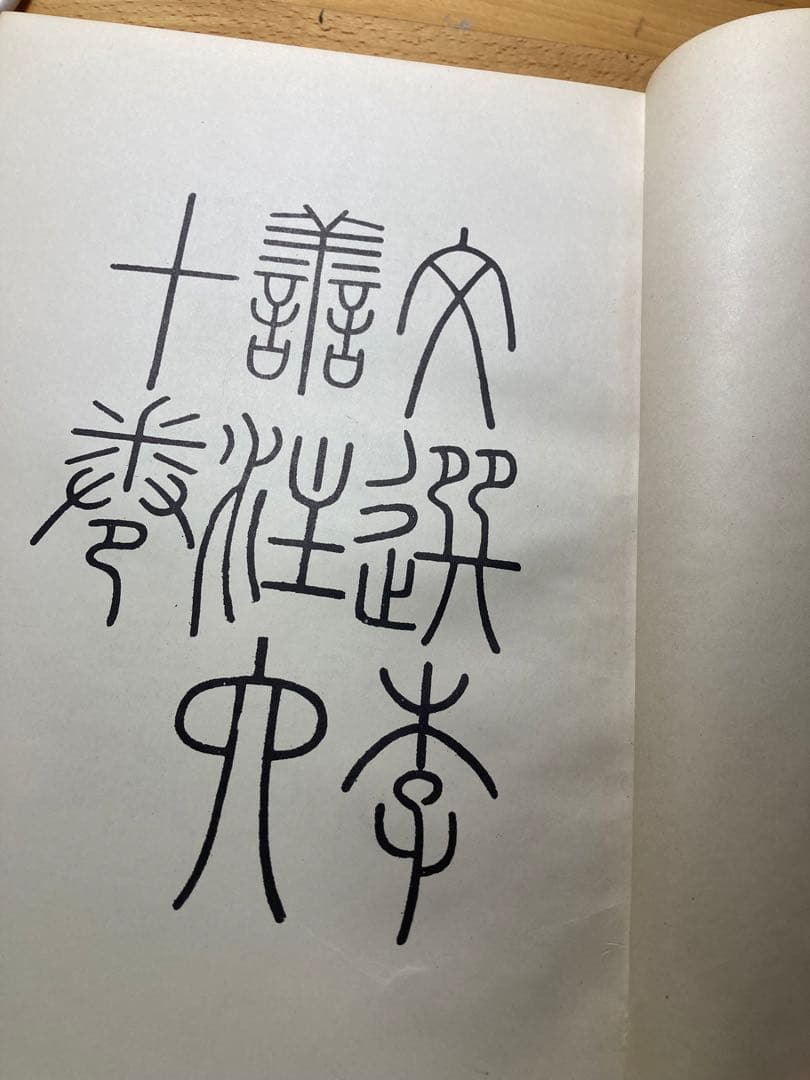 文選李
善注六
十卷